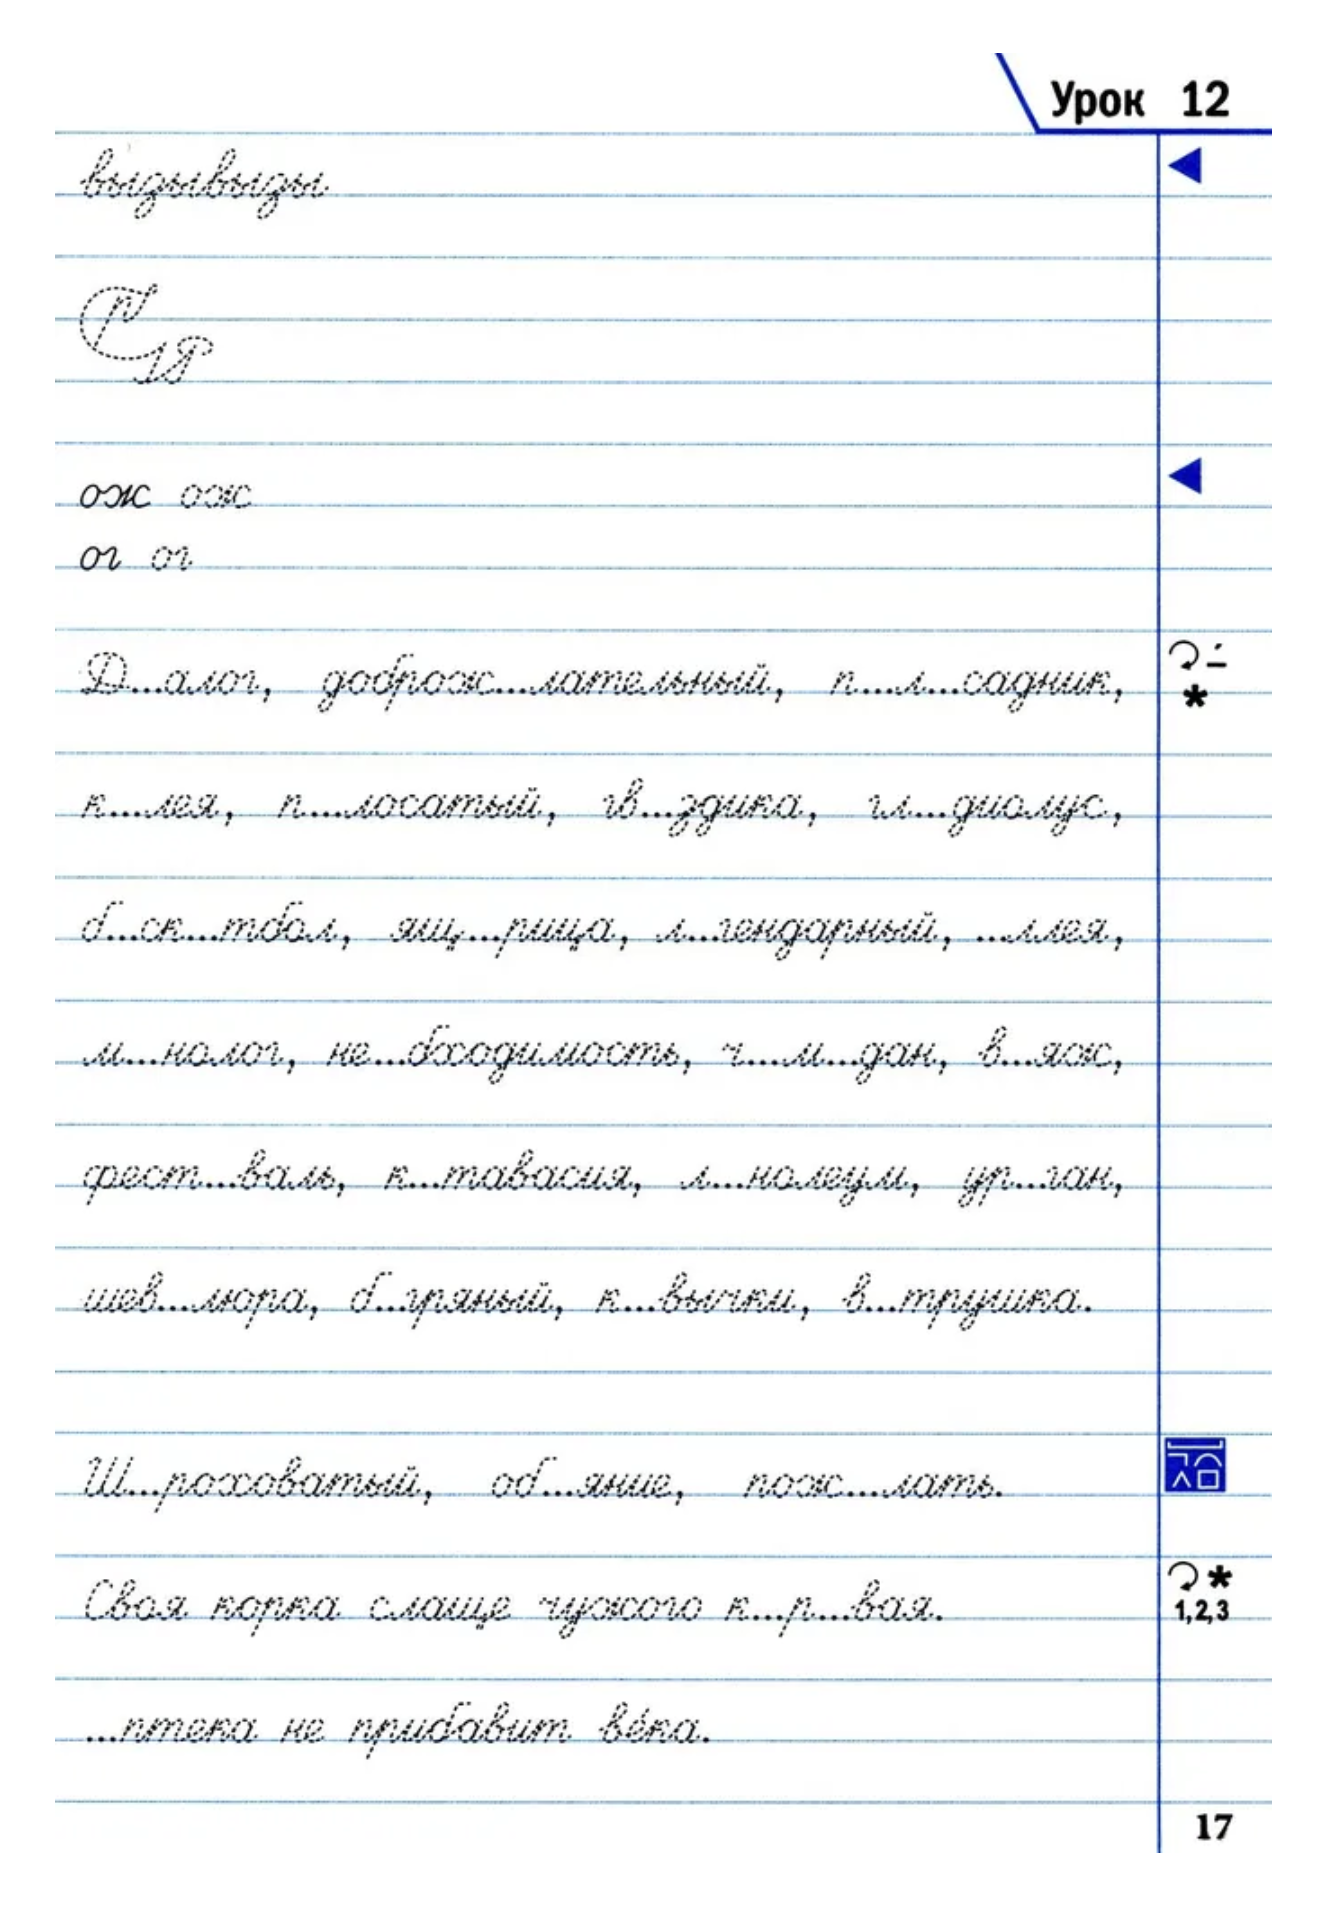 Урок 12
выдывыды
ож ож
ог ог
Д...алог, доброж...лательный, п...л...садник,
к...лея, п...лосатый, гв...здика, гл...диолус,
б...ск...тбол, ящ...рица, л...гендарный, ...ллея,
м...нолог, не...бходимость, ч...м...дан, в...яж,
фест...валь, к...тавасия, л...нолеум, ур...ган,
шев...люра, б...гряный, к...вычки, в...трушка.
Ш...роховатый, об...яние, пож...лать.
Своя корка слаще чужого к...р...вая.
1,2,3
...птека не прибавит ве́ка.
17